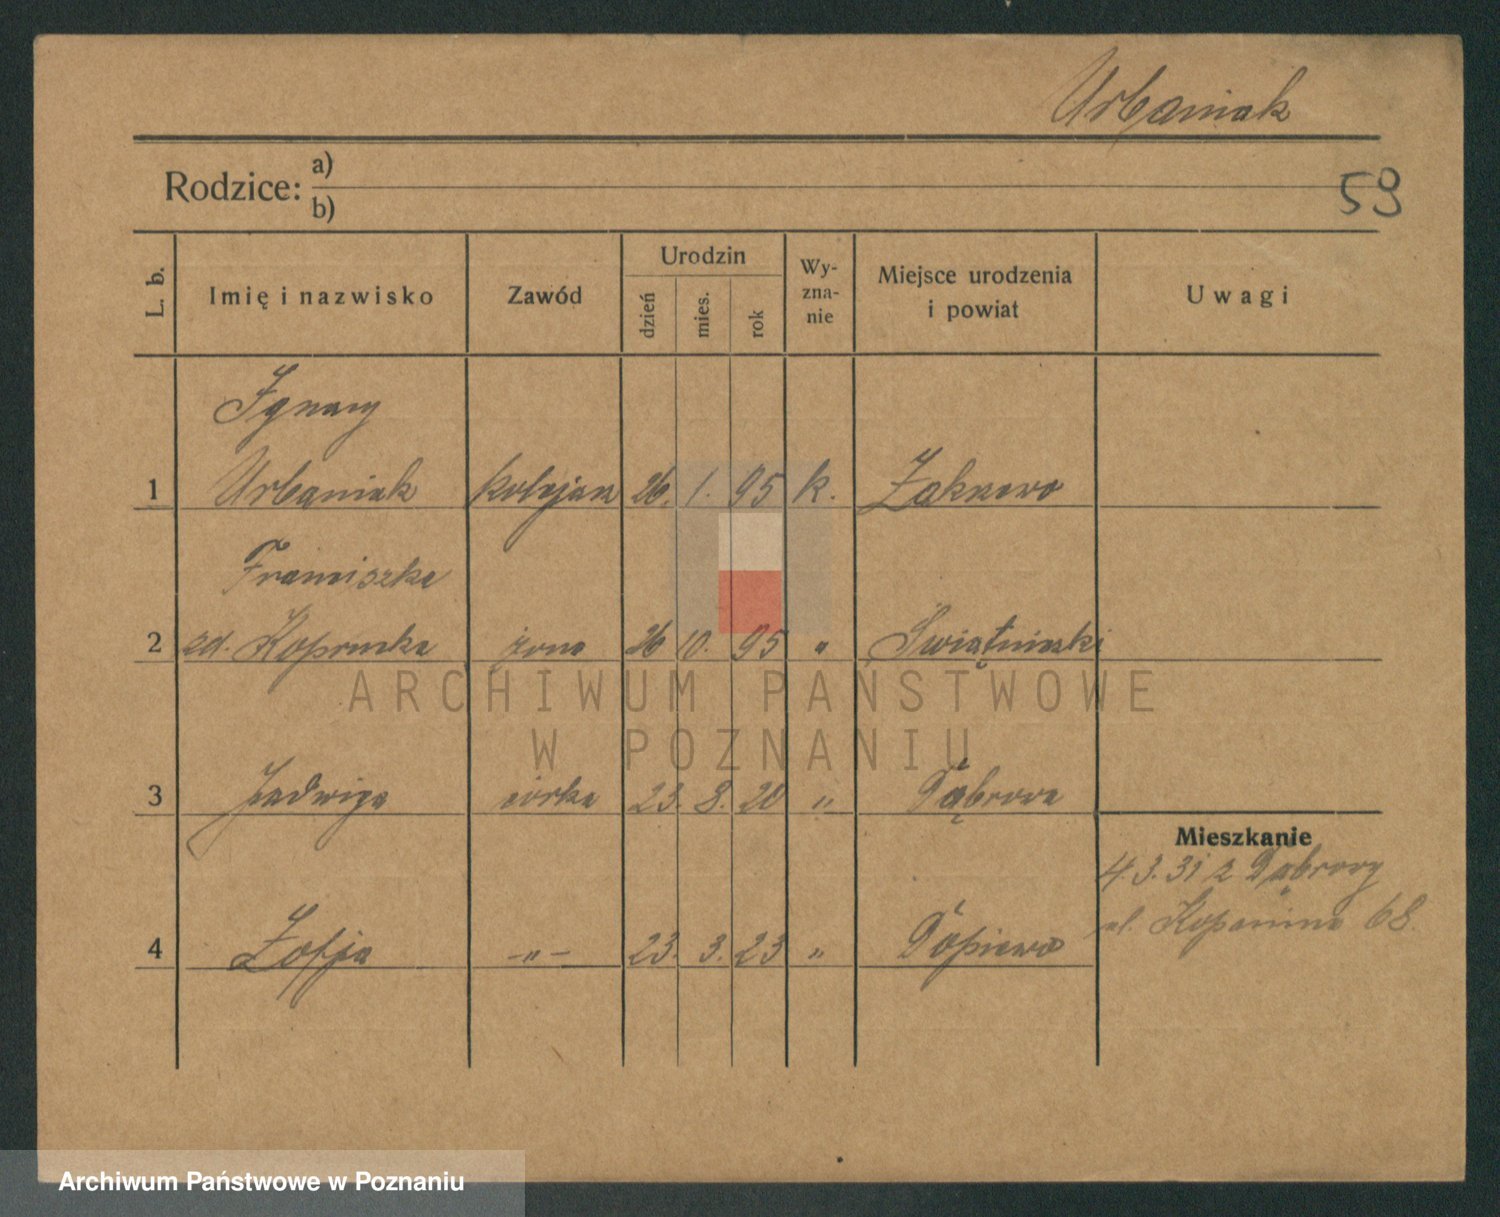 Urbaniak
Rodzice: a)
b)
59
L. b. Imię i nazwisko Zawód Urodzin dzień mies. rok Wy-zna-nie Miejsce urodzenia i powiat Uwagi
Ignacy
1 Urbaniak kolejarz 26. 1. 95 k.
Franciszka
2 zd. żona 26 10. 95 " Świątniczki
ARCHIWUM PAŃSTWOWE
W POZNANIU
3 Jadwiga córka 23. 8. 20 " Dąbrowa
Mieszkanie
4.3.31 z Dąbrowy
ul. Kopanina 68.
4 Zofja -"- 23. 3. 23 " Dopiewo
Archiwum Państwowe w Poznaniu